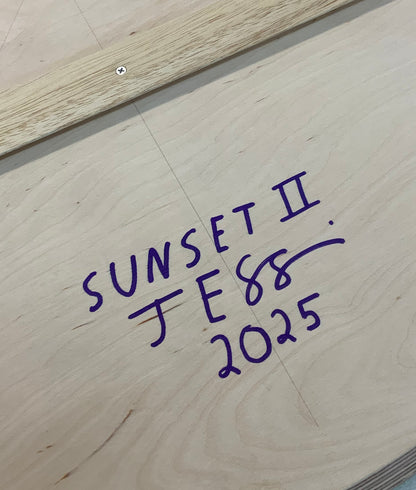 SUNSET II
JESS
2025